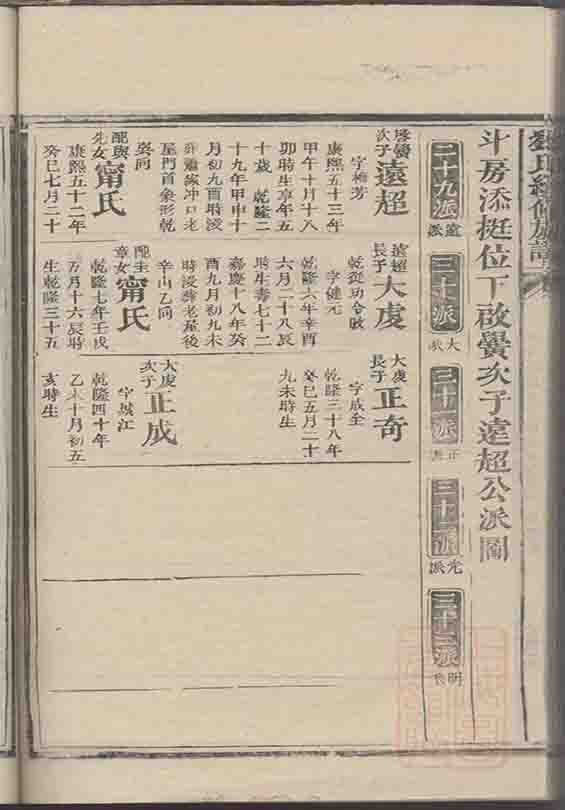 氏續修族譜
斗房添挺位下啟黌次子遠超公派圖
二十九派
遠派
三十派
大派
三十一派
正派
三十二派
光派
三十三派
明派
啟黌次子
遠超
字梅芳
康熙五十三年
甲午十月十八
卯時生享年五
十歲 乾隆二
十九年甲申十
月初九酉時歿
葬蕭家冲口老
屋門首象形乾
巽向
配與先女
甯氏
康熙五十一年
癸巳七月二十
遠超長子
大虔
字健元
乾隆六年辛酉
六月二十八辰
時生壽七十二
嘉慶十八年癸
酉九月初九未
時歿葬老屋後
辛山乙向
配圭章女
甯氏
乾隆七年壬戌
五月十六辰時
生乾隆三十五
大虔長子
正奇
字成全
乾隆三十八年
癸巳五月二十
九未時生
大虔次子
正成
字城江
乾隆四十年
乙未十月初五
亥時生